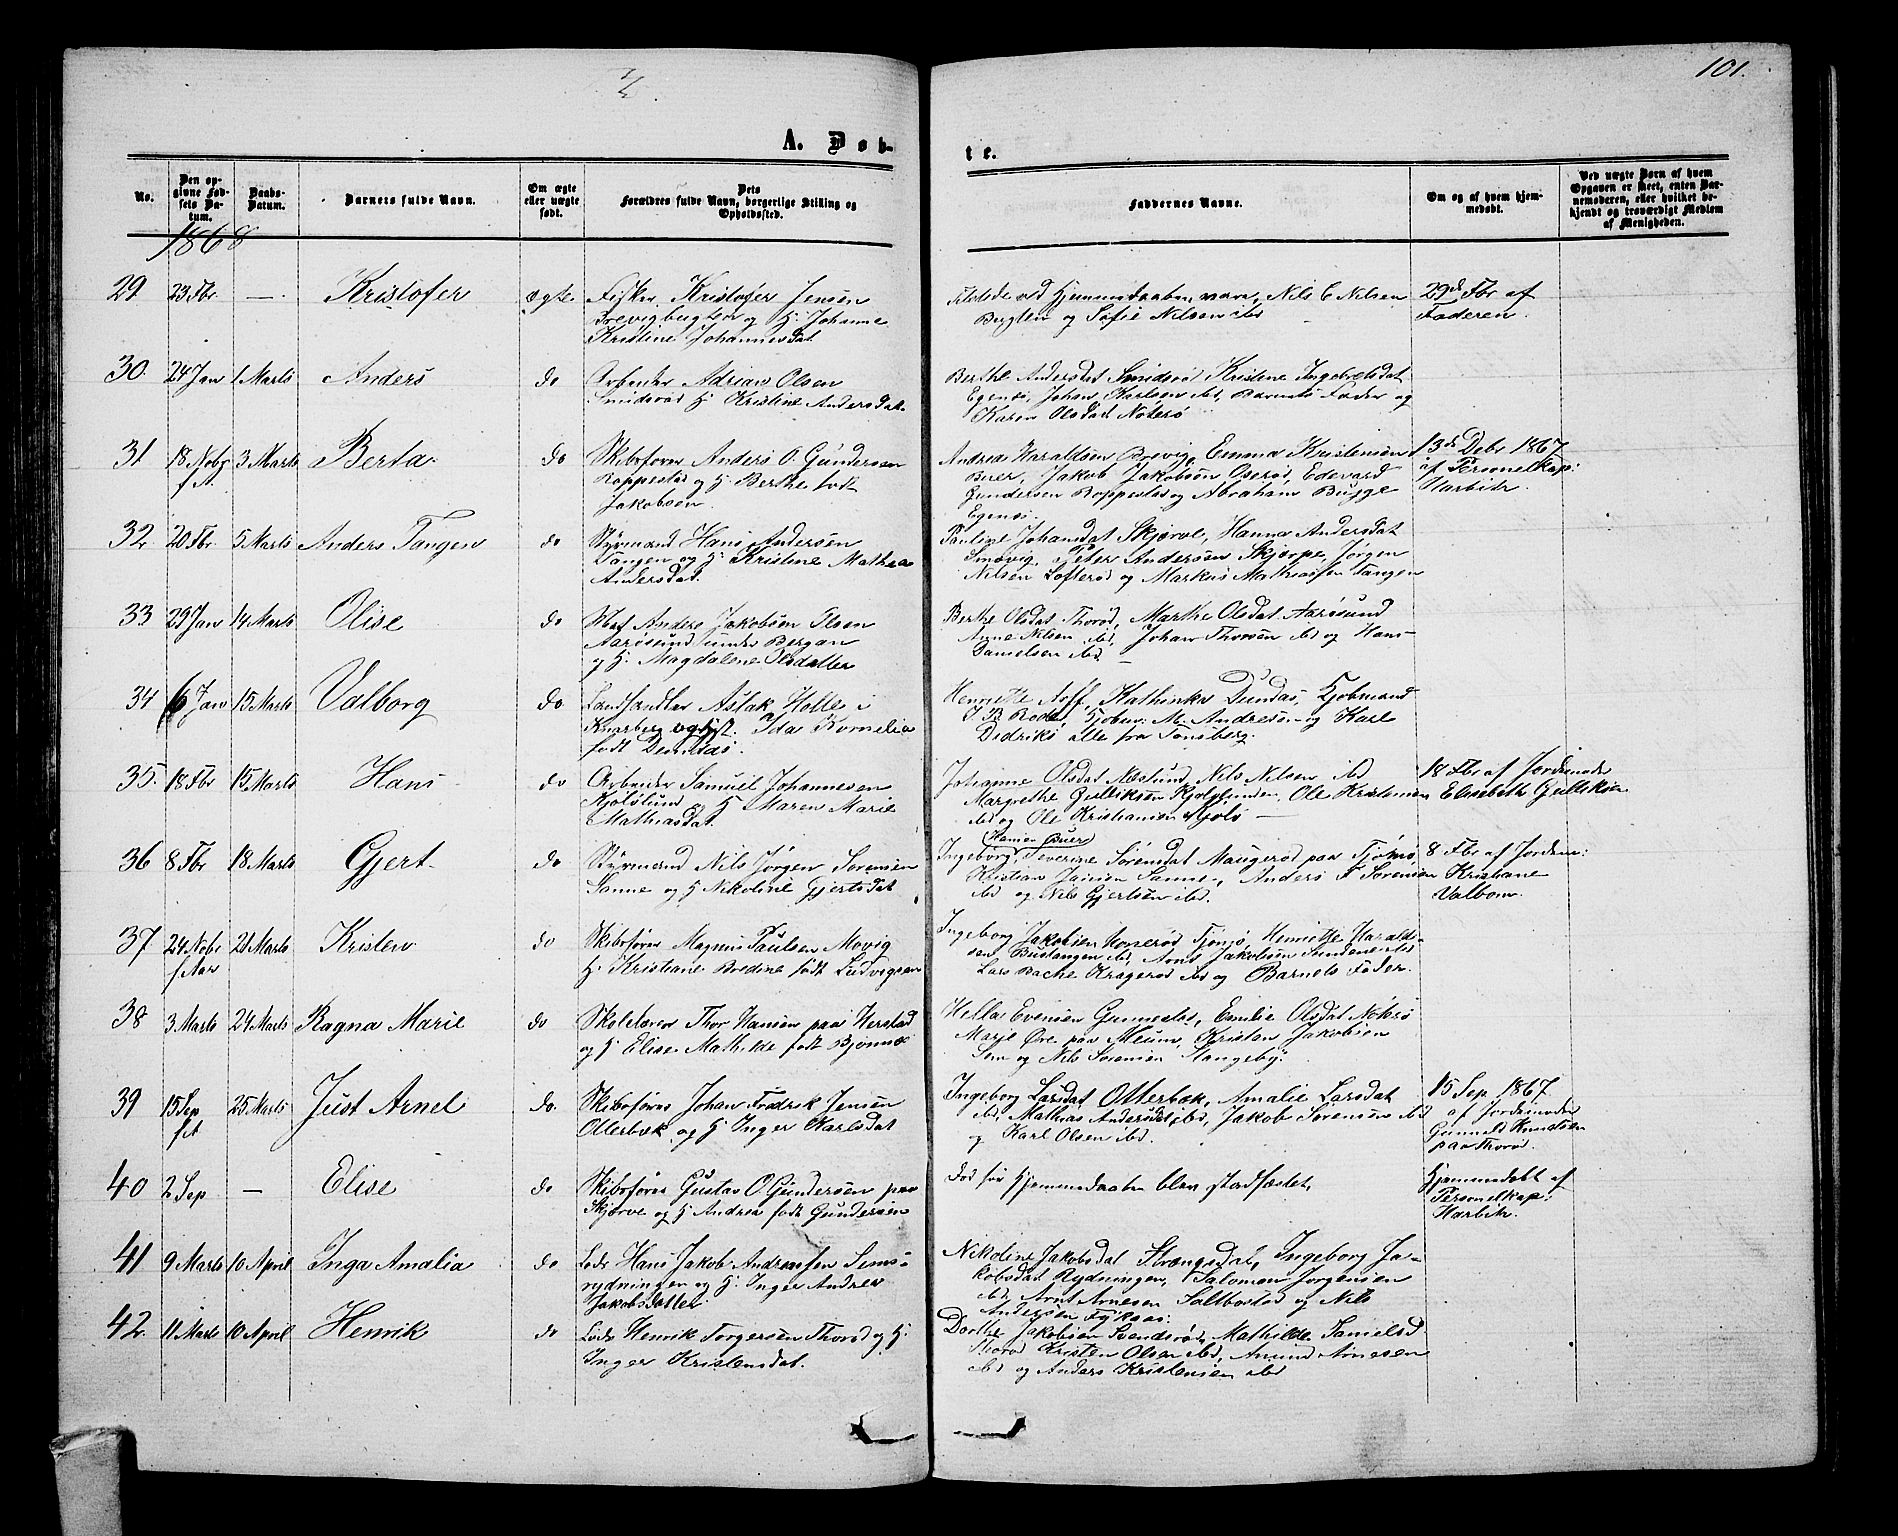 101.
A. Døb-
te.
No.
Den op-
givne Fød-
sels Da-
tum.
Daabs-
Datum.
Barnets fulde Navn.
Om ægte
eller uægte
født.
Dets
Forældres fulde Navn, borgerlige Stilling og
Opholdssted.
Faddernes Navne.
Om og af hvem hjem-
medøbt.
Ved uægte Børn af hvem
Opgaven er skeet, enten Bar-
nemoderen, eller hvilket be-
kjendt og troværdigt Medlem
af Menigheden.
1868
29 23 Fbr — Kristofer ægte
Fisker Kristofer Jensen
Brevigbugten og H. Johanne
Kristine Johannesdat
Tilstede ved Hjemmedaaben vare, Nils C Nilsen
Bugten og Sofie Nilsen ibd
29de Fbr af
Faderen.
30. 24 Jan 1 Marts Anders do
Arbeider Adrian Olsen
Smidsrød H. Kristine Andersdat.
Berthe Andersdat Smidsrød Kristine Ingebretsdat
Egenæs, Johan Karlsen ibd, Barnets Fader og
Karen Olsdat Noterø
31 18 Nobr 3 Marts Berta do
f A.
Skibsfører Anders O. Gundersen
Roppestad og H. Berthe født
Jakobsen.
Andrea Haraldsen Brevig, Emma Kristensen
Buer, Jakob Jakobsen Oserød, Edevard
Gundersen Roppestad og Abraham Bugge
Egenæs.
13de Debr 1867
af Personelkap:
Harbitz.
32 20 Fbr. 5 Marts Anders Tangen do
Styrmand Hans Andersen
Tangen og H. Kristine Mathea
Andersdat.
Pauline Johansdat Skjærve, Hanna Andersdat
Smøvig, Peter Andersen Skjerpe, Jørgen
Nilsen Lofterød og Markus Mathiassen Tangen
33 29 Jan 14 Marts Olise do
Mat Anders Jakobsen Olsen
Aarøsund under Bergan
og H. Magdalene Olsdatter
Berthe Olsdat Thorød, Marthe Olsdat Aarøsund
Anne Nilsen ibd, Johan Thorsen ibd og Hans
Danielsen ibd
34 6 Jan 15 Marts Valborg do
Landhandler Aslak Holte i
Knarberg og Hust. Ida Kornelia
født Dundas.
Henriette Aoff, Kathinka Dundas, Kjøbmand
J B Rode, Kjøbm: M. Andresen og Karl
Didriks alle fra Tønsberg.
35. 18 Fbr 15 Marts Hans do
Arbeider Samuel Johannesen
Kjøløsund og H Maren Marie
Mathiasdat.
Johanne Olsdat Næsund, Nils Nilsen ibd
Margrethe Gulliksen Kjøløsundn, Ole Kristensen
ibd og Ole Kristiansen Kjøls —
18 Fbr af Jordemoder
Elisabeth Gulliksen
36 8 Fbr 18 Marts Gjert. do
Styrmand Nils Jørgen Sørensen
Sanne og H Nikoline Gjertsdat
Hansen Buer
Ingeborg, Severine Sørensdat Maugerød paa Tjømø,
Kristian Jansen Sanne, Anders F Sørensen
ibd og Nils Gjertsen ibd.
8 Fbr af Jordem:
Kristiane
Valbom.
37 24 Nobr 21 Marts Kristen do
f Aar
Skibsfører Magnus Paulsen Movig
H. Kristiane Bredine født Ludvigsen
Ingeborg Jakobsen Honerød Tjømø, Henriette Harald-
sen Bustangen ibd, Arnt Jakobsen Sundene ibd
Lars Bache Kragerød ibd og Barnets Fader.
38 3 Marts 24 Marts Ragna Marie do
Skolelærer Thor Hansen paa Herstad
og H Elise Mathilde født Bjønnes
Hella Evensen Gunnestad, Emilie Olsdat Nøterø
Marie Øre paa Meum, Kristian Jakobsen
Sem og Nils Sørensen Stangeby.
39 15 Sep 25 Marts Just Arnel do.
f A
Skibsfører Johan Fredrik Jensen
Otterbæk og H. Inger Karlsdat
Ingeborg Larsdat Otterbæk, Amalie Larsdat
ibd, Mathias Andersen ibd, Jakob Sørensen ibd
og Karl Olsen ibd.
15 Sep 1867
af Jordemoder
Gunneld Knudsen
paa Thorød.
40 2 Sep — Elise do
Skibsfører Gustav O Gundersen paa
Skjerve og H Andrea født Gundersen
Død før Hjemmedaaben blev stadfæstet.
Hjemmedøbt af
Personelkap:
Harbitz.
41 9 Marts 10 April Inga Amalia do
Lods Hans Jakob Andreassen Sems-
rydningen og H. Inger Andrea
Jakobsdatter
Nikoline Jakobsdat Strængsdal, Ingeborg Ja-
kobsdat Rydningen, Salomon Jørgensen
ibd, Arnt Arnesen Saltbostad og Nils
Andersen Fykaas:
42. 11 Marts 10 April Henrik do
Lods Henrik Torgersen Thorød og H.
Inger Kristensdat.
Dorthe Jakobsen Svendsrød, Mathilde Danielsd
Thorød Kristen Olsen ibd, Amund Arnesen
ibd og Anders Kristensen ibd